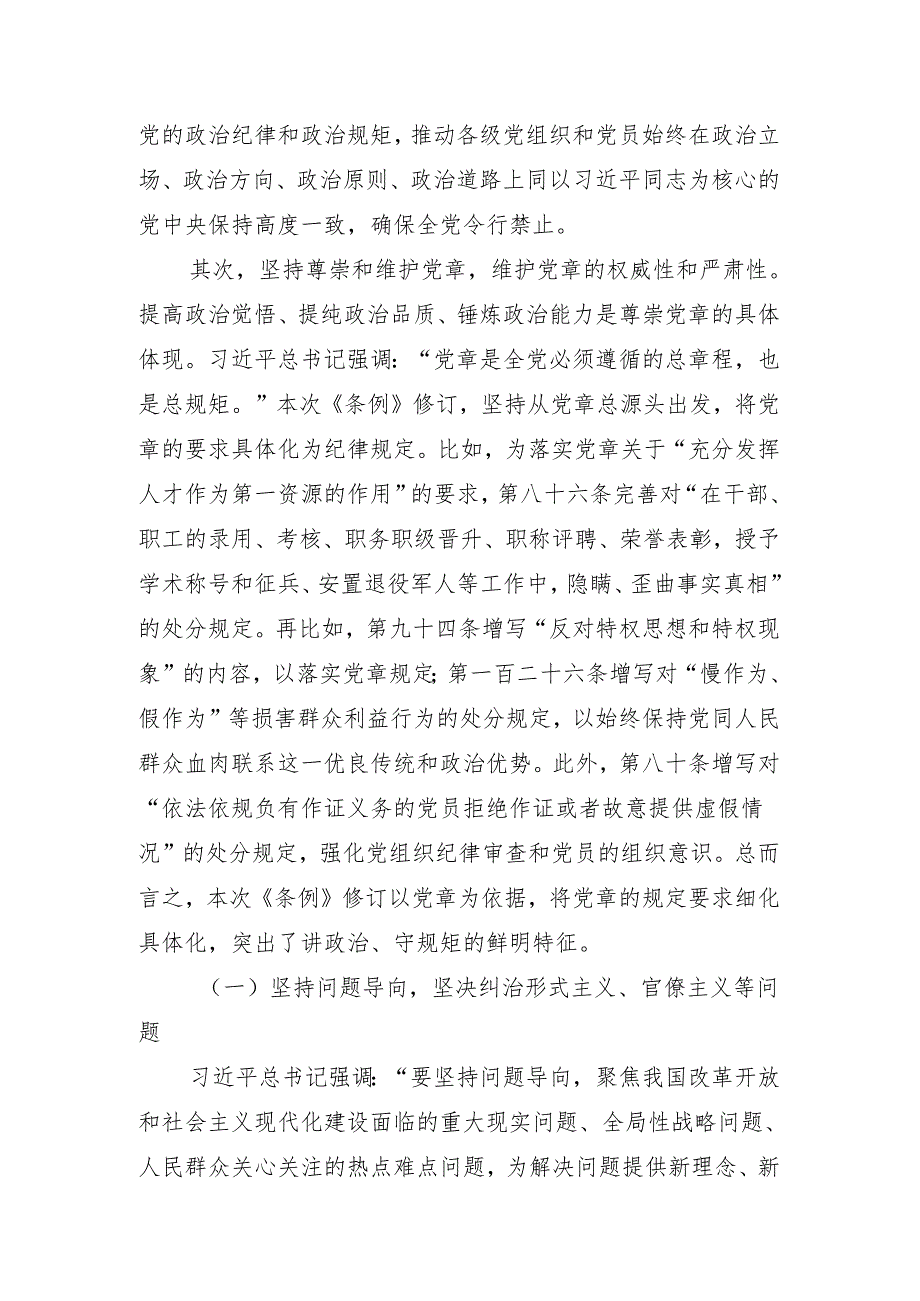 党的政治纪律和政治规矩，推动各级党组织和党员始终在政治立
场、政治方向、政治原则、政治道路上同以习近平同志为核心的
党中央保持高度一致，确保全党令行禁止。
其次，坚持尊崇和维护党章，维护党章的权威性和严肃性。
提高政治觉悟、提纯政治品质、锤炼政治能力是尊崇党章的具体
体现。习近平总书记强调：“党章是全党必须遵循的总章程，也
是总规矩。”本次《条例》修订，坚持从党章总源头出发，将党
章的要求具体化为纪律规定。比如，为落实党章关于“充分发挥
人才作为第一资源的作用”的要求，第八十六条完善对“在干部、
职工的录用、考核、职务职级晋升、职称评聘、荣誉表彰，授予
学术称号和征兵、安置退役军人等工作中，隐瞒、歪曲事实真相”
的处分规定。再比如，第九十四条增写“反对特权思想和特权现
象”的内容，以落实党章规定；第一百二十六条增写对“慢作为、
假作为”等损害群众利益行为的处分规定，以始终保持党同人民
群众血肉联系这一优良传统和政治优势。此外，第八十条增写对
“依法依规负有作证义务的党员拒绝作证或者故意提供虚假情
况”的处分规定，强化党组织纪律审查和党员的组织意识。总而
言之，本次《条例》修订以党章为依据，将党章的规定要求细化
具体化，突出了讲政治、守规矩的鲜明特征。
（一）坚持问题导向，坚决纠治形式主义、官僚主义等问
题
习近平总书记强调：“要坚持问题导向，聚焦我国改革开放
和社会主义现代化建设面临的重大现实问题、全局性战略问题、
人民群众关心关注的热点难点问题，为解决问题提供新理念、新